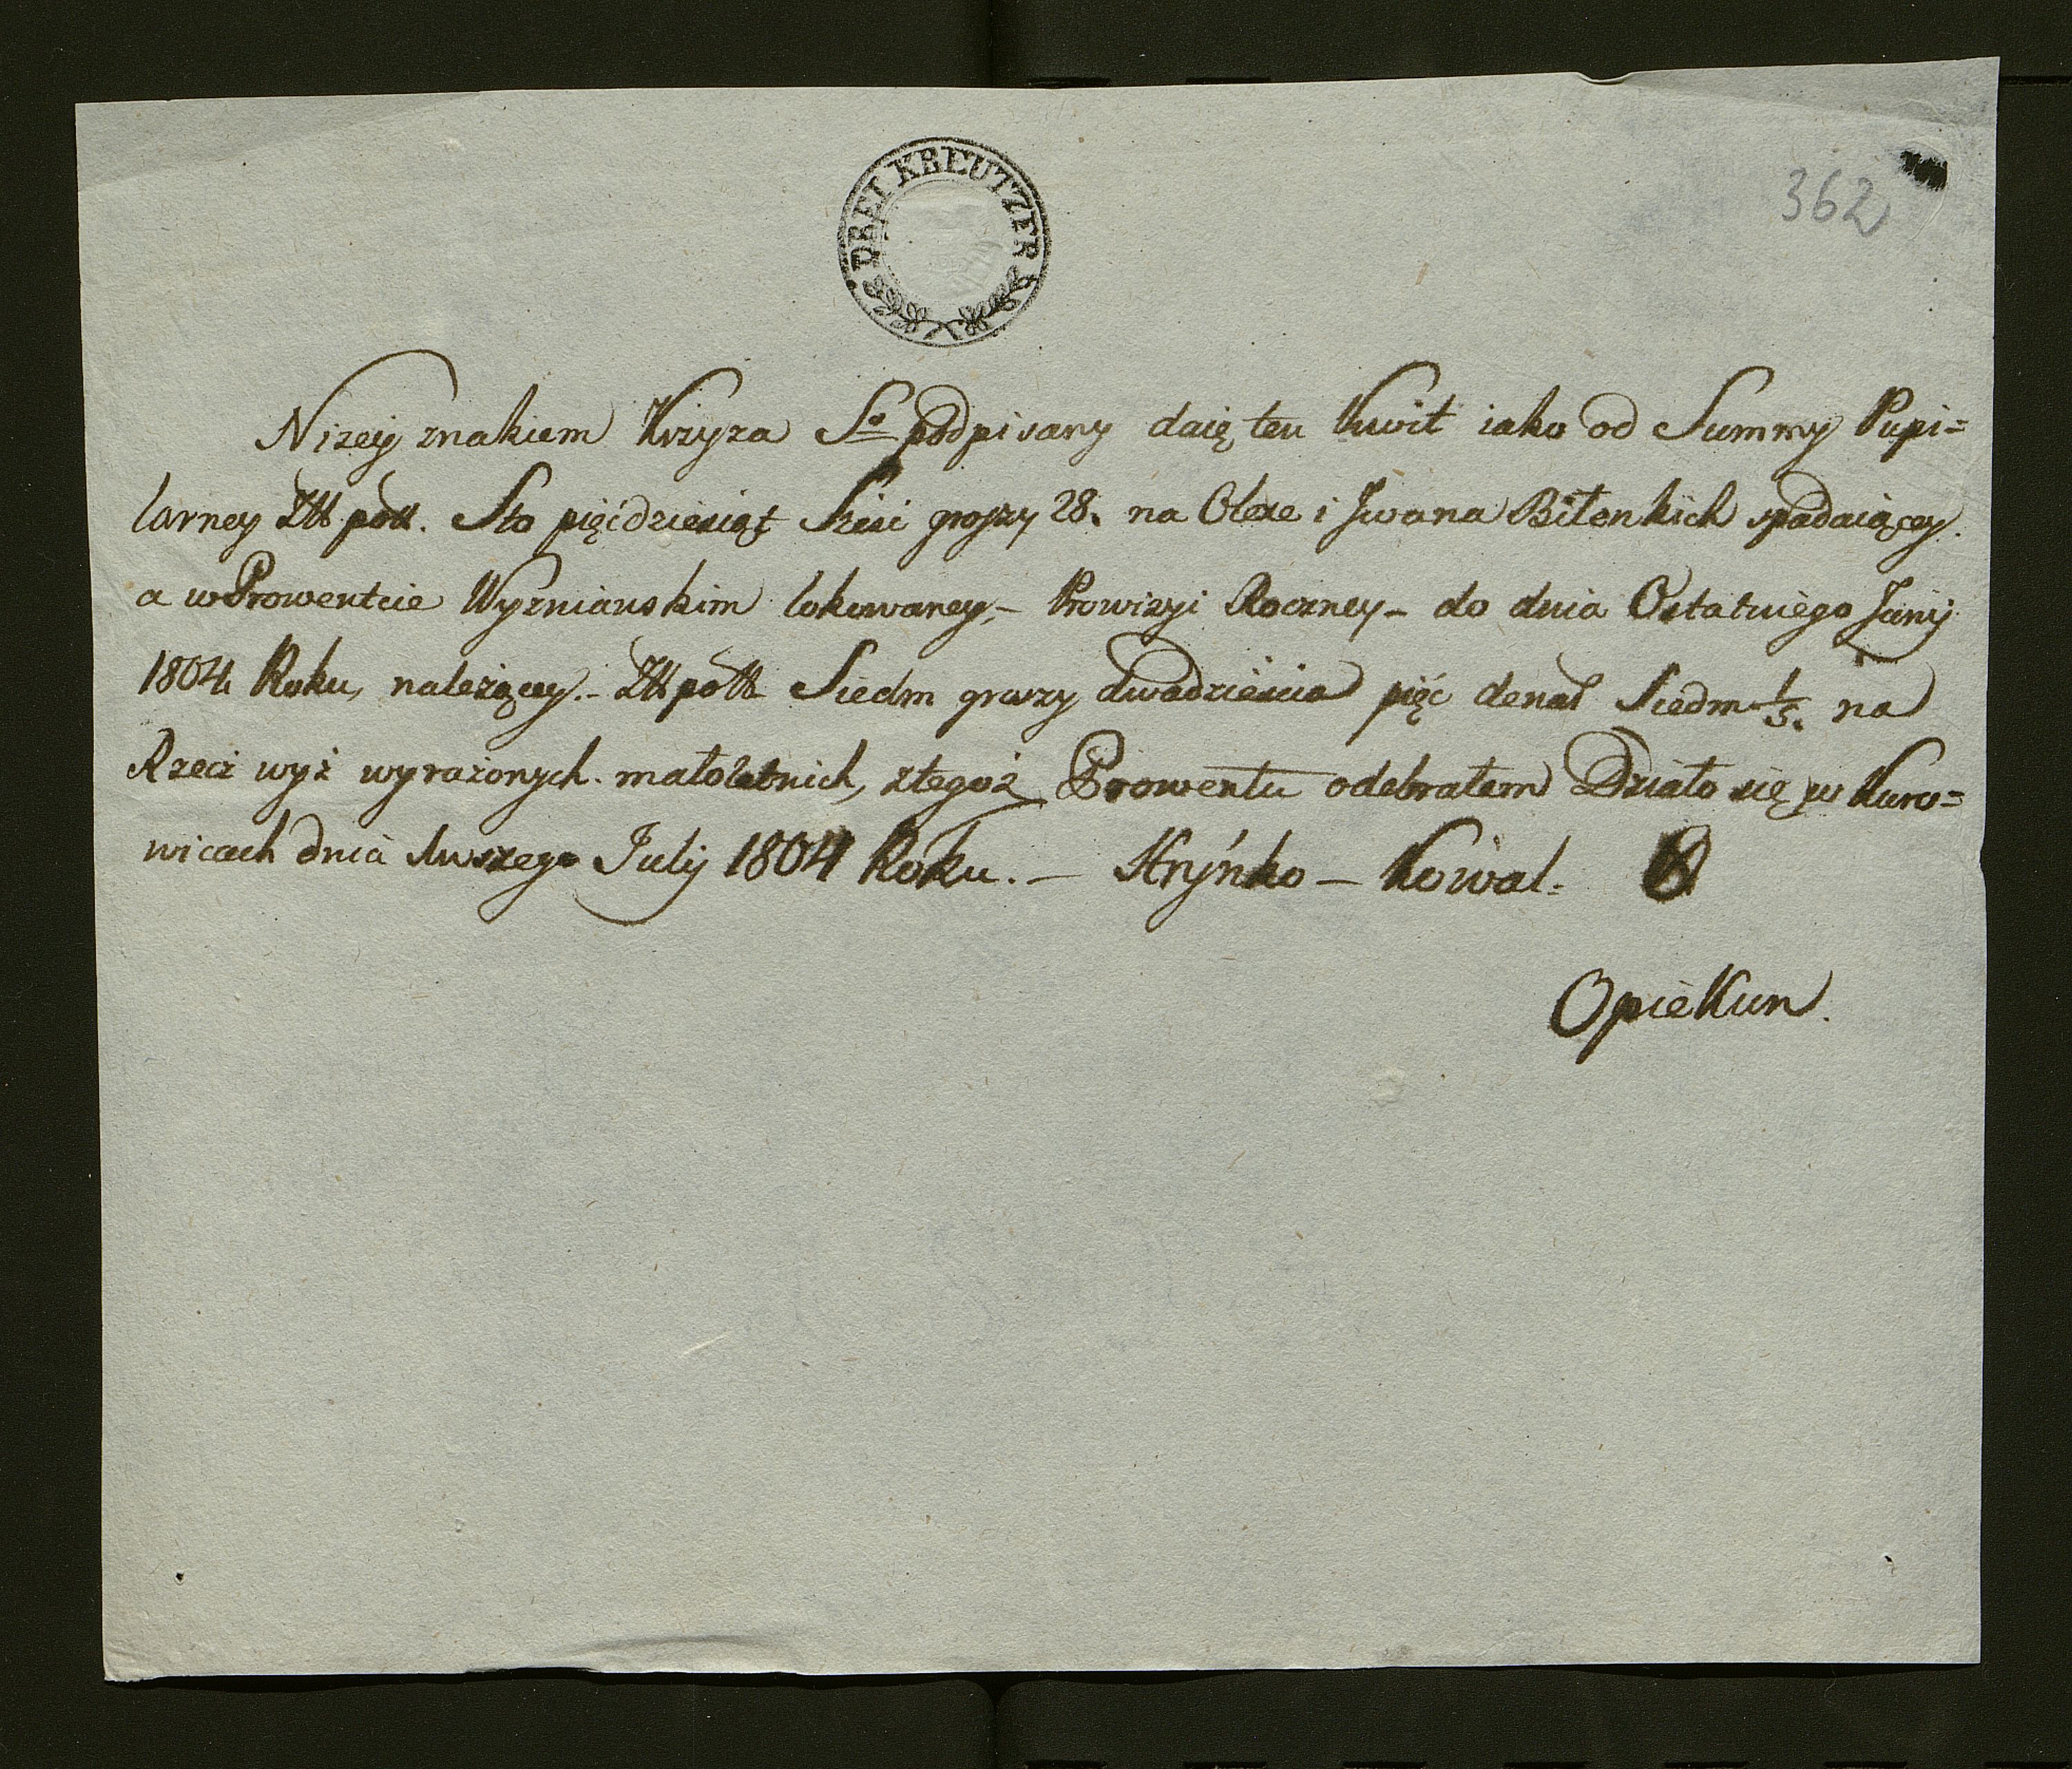 DREI KREUTZER
362
Nizey znakiem Krzyza So podpisany daię ten Kwit iako od Summy Pupi=
larney Złł poll. Sto pięćdziesiąt Sześć groszy 28. na Olexe i Jwana Biłenkich spadaiącey.
a w Prowentcie Wyzniańskim lokowaney, – Prowizyi Roczney – do dnia Ostatniego Junij
1804 Roku, należącey. – Złł poll Siedm groszy dwadzieścia pięć denar Siedm 1/5. na
Rzecz wyż wyrażonych małoletnich, ztegoż Prowentu odebrałem Działo się w Kuro=
wicach dnia 1wszego Julij 1804 Roku. – Hryńko – Kowal.
Opiekun.